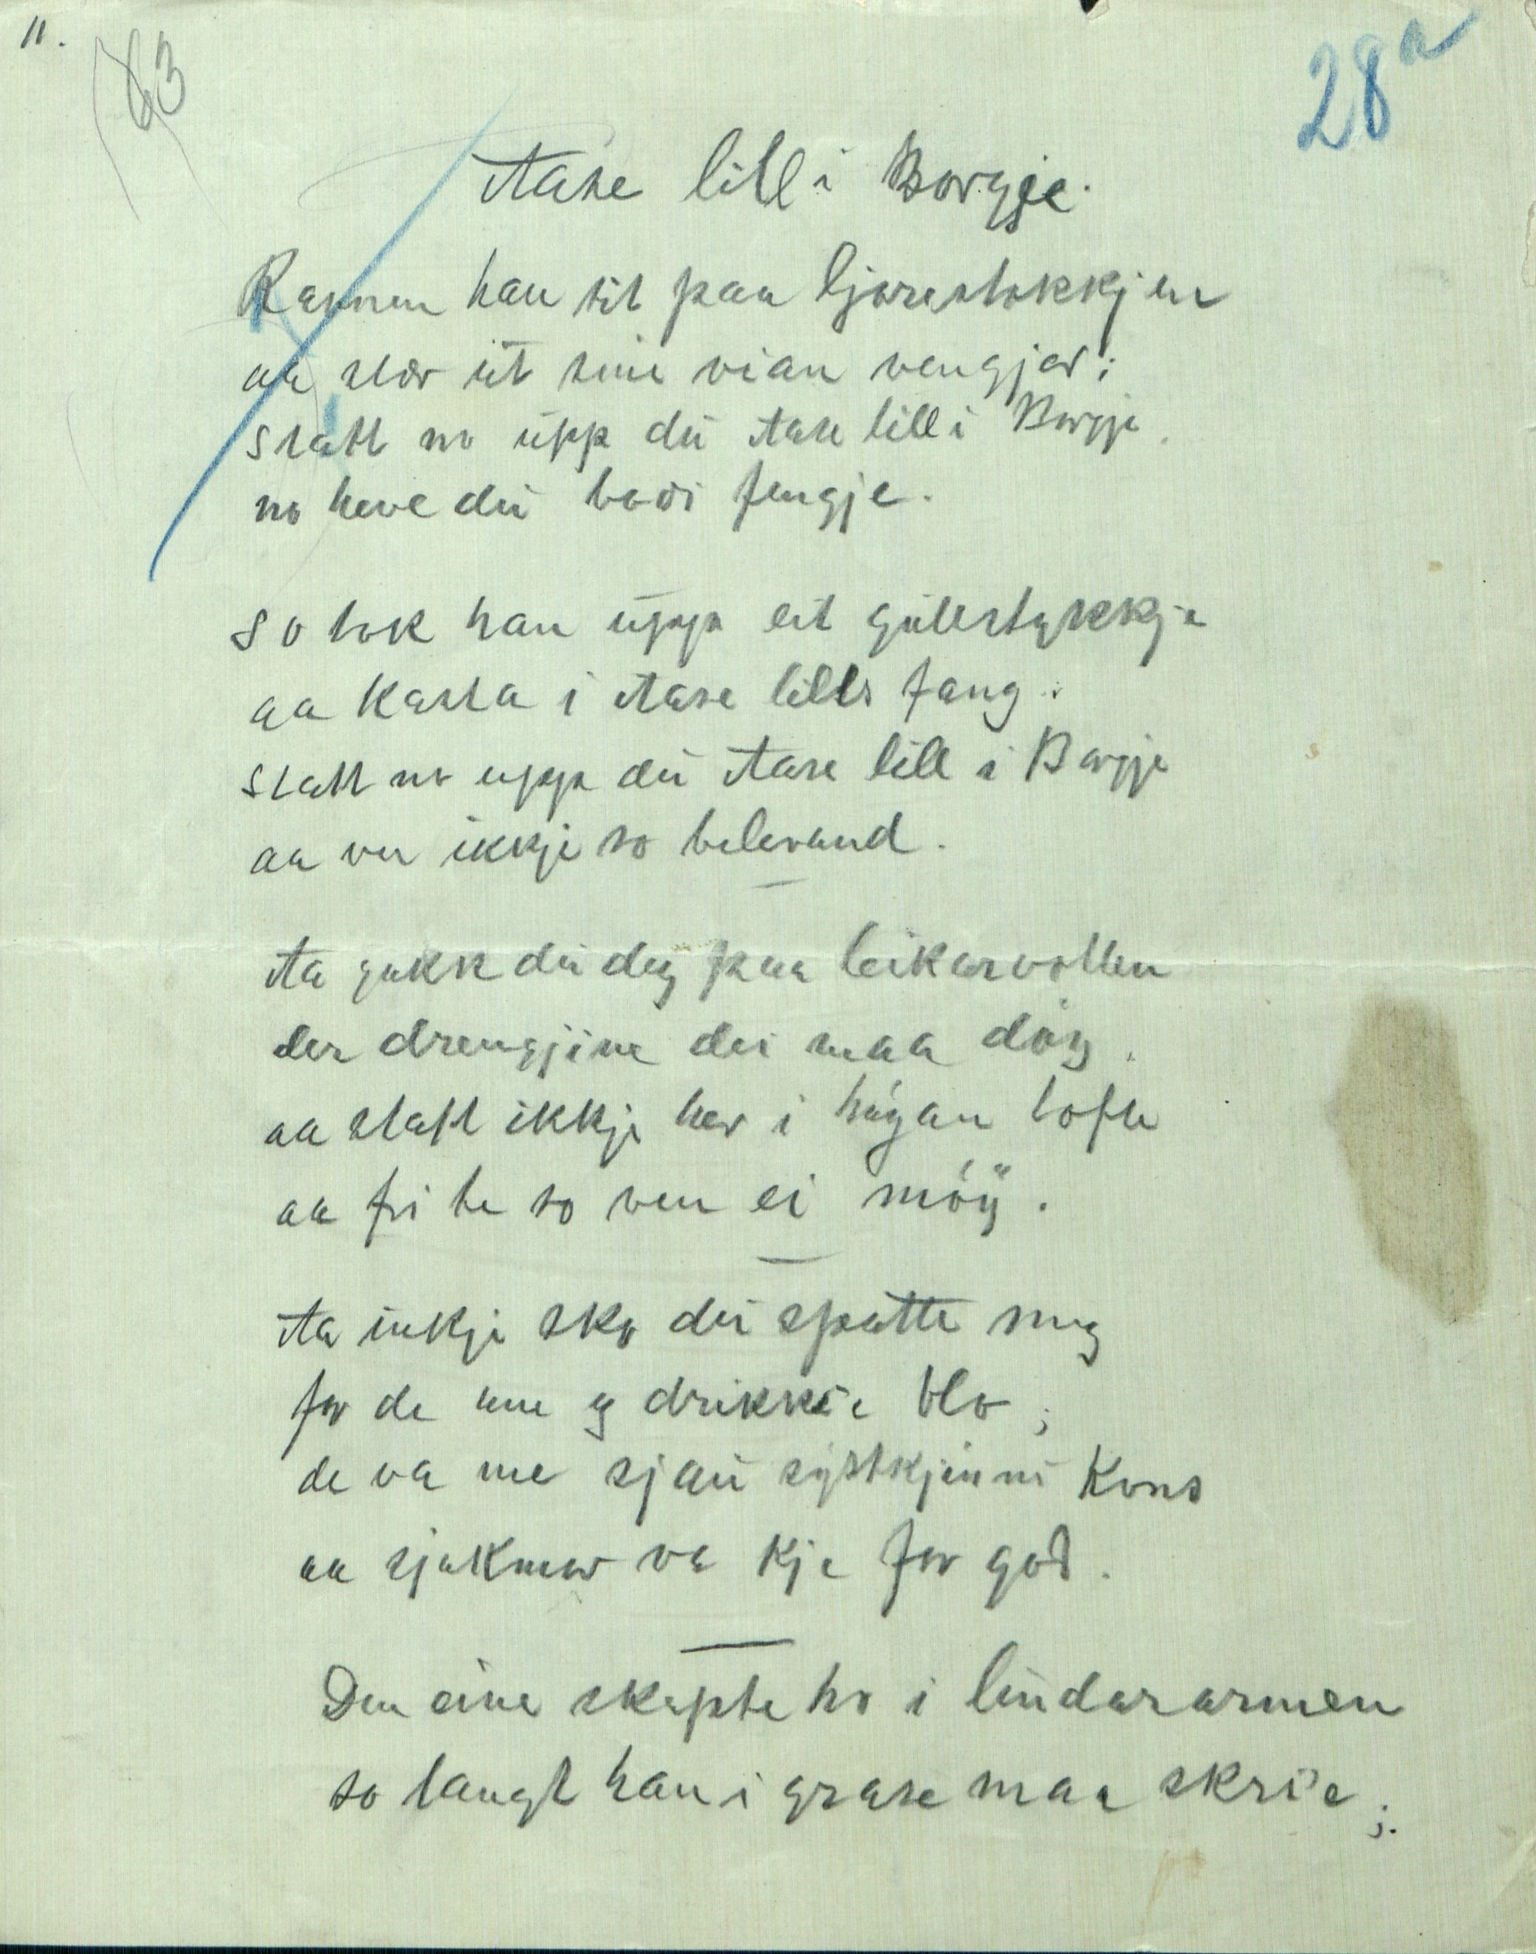 11.
63
28a
Aase lill i Borgje.
Ramnen han sit paa ljorestokkjen
aa slær ut sine vian vengjar;
statt no upp du Aase lill i Borgje
no heve du boði fengje.
So tok han upp eit gullstykkje
aa kasta i Aase lills fang:
statt no upp du Aase lill i Borgje
aa ver ikkje so belevand.
Aa gakk du deg paa leikarvollen
der drengjine dei maa döy,
aa statt ikkje her i högan lofte
aa fri te so ven ei möy.
Aa inkje sko du spotte meg
for de um eg drikkie blo;
de va me sjau systkjinni kons
aa sjukmor va kje for god.
Den eine skapte ho i lindarormen
so langt han i grase maa skrie;